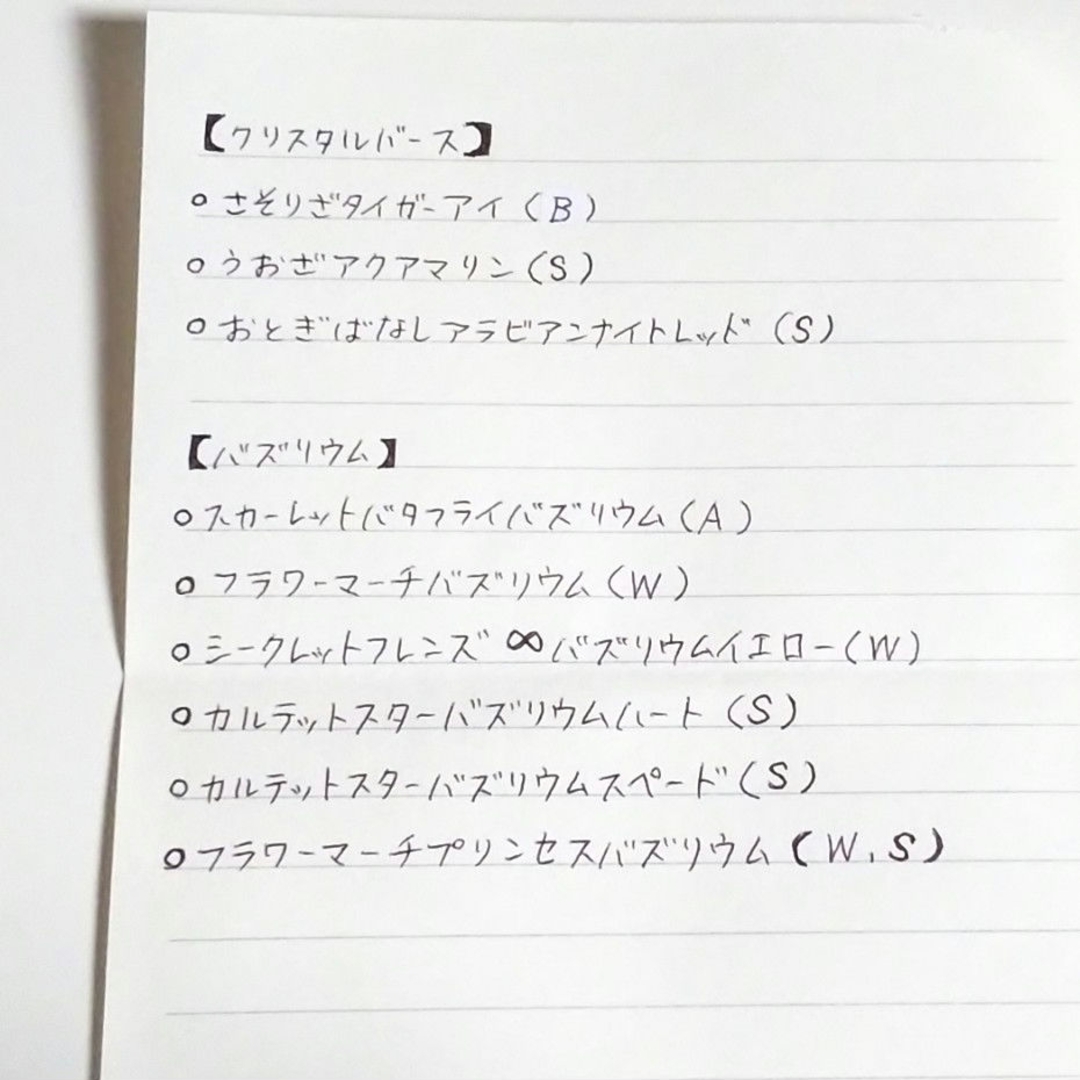 【クリスタルバース】
○さそりざタイガーアイ(B)
○うおざアクアマリン(S)
○おとぎばなしアラビアンナイトレッド(S)
【バズリウム】
○スカーレットバタフライバズリウム(A)
○フラワーマーチバズリウム(W)
○シークレットフレンズ∞バズリウムイエロー(W)
○カルテットスターバズリウムハート(S)
○カルテットスターバズリウムスペード(S)
○フラワーマーチプリンセスバズリウム(W,S)